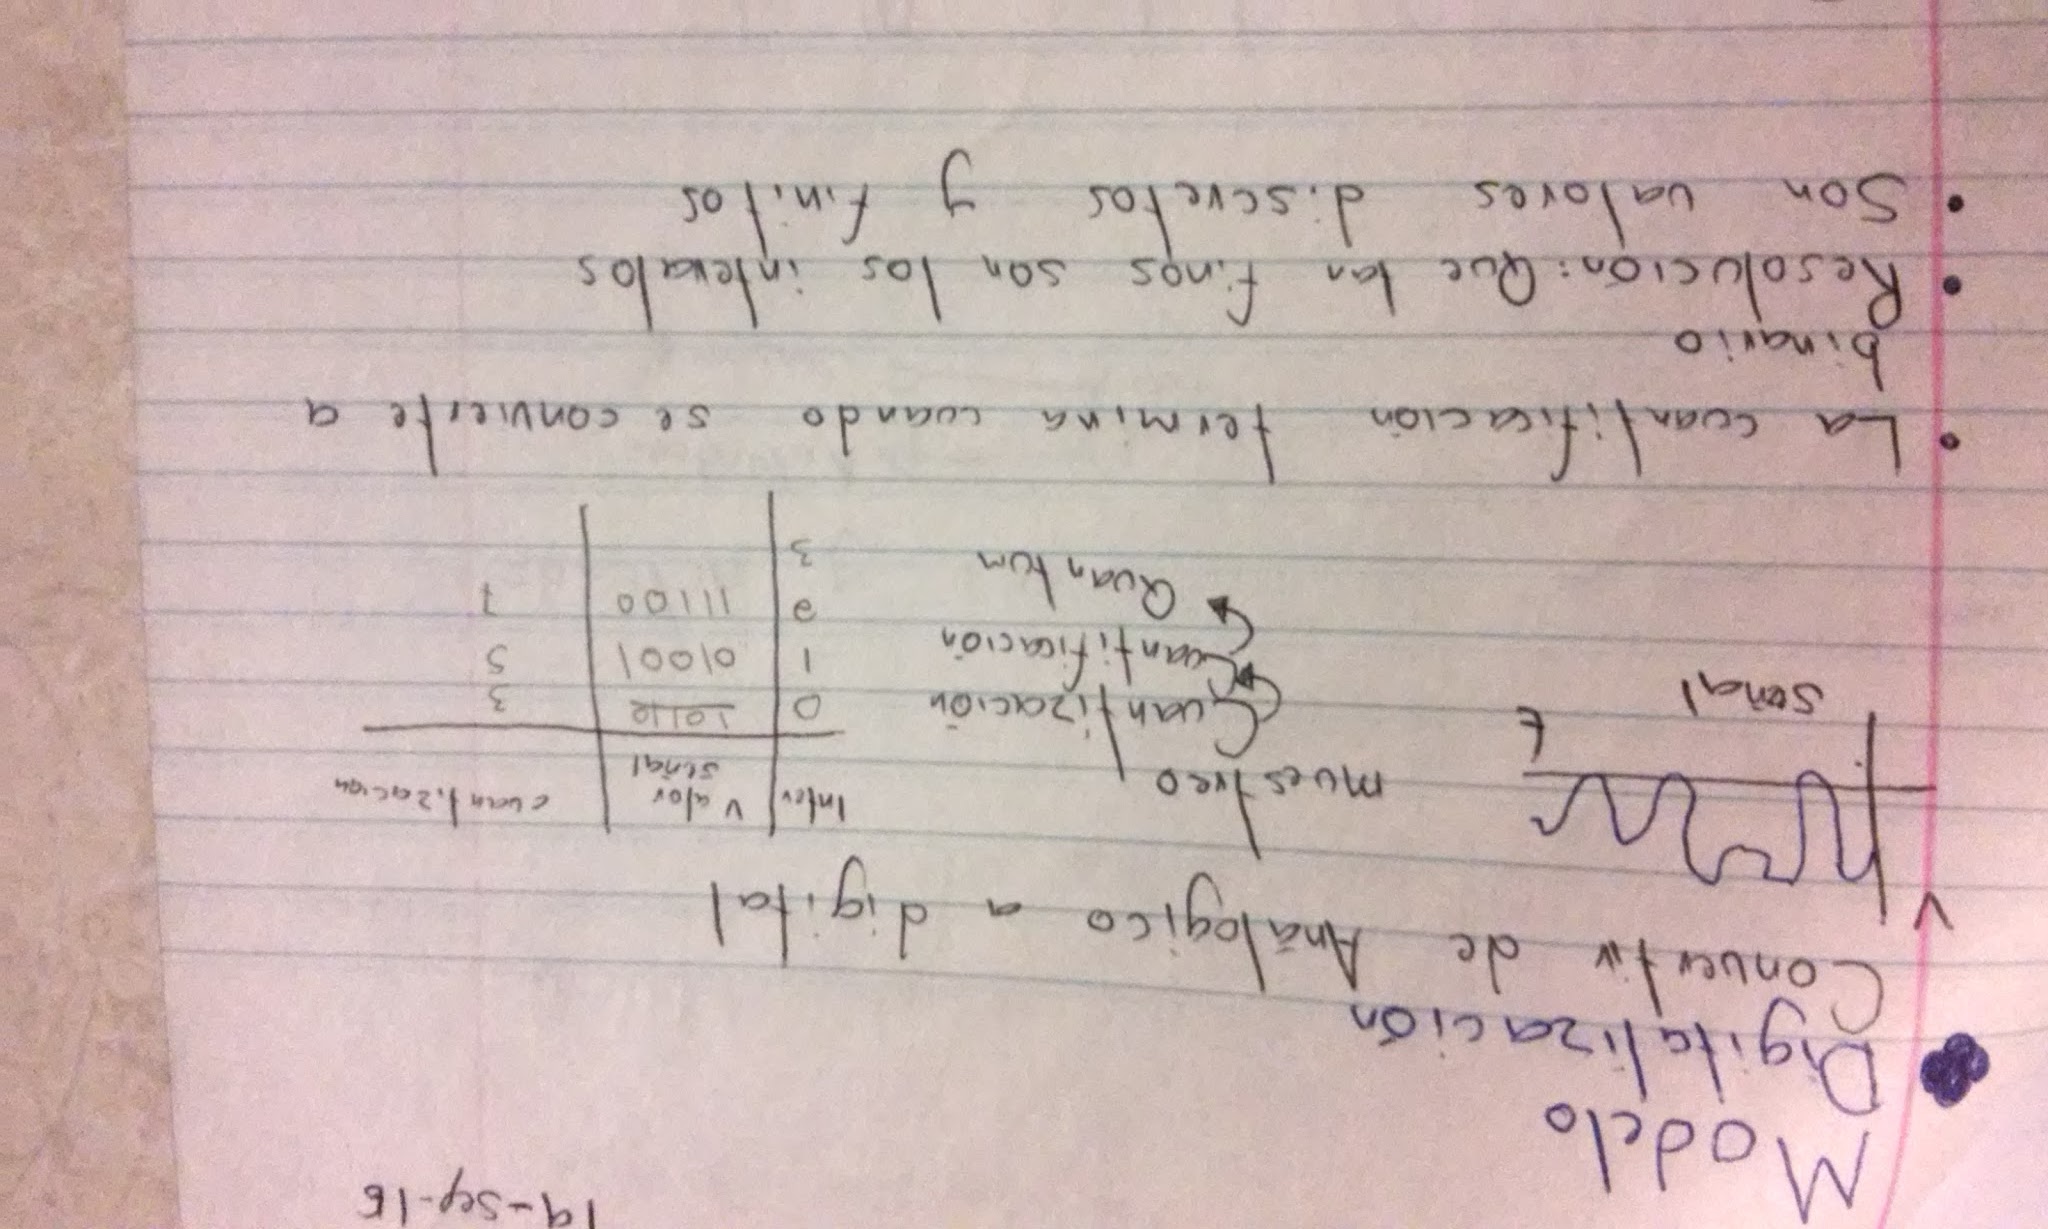 19-sep-16
Modelo
Digitalización
Convertir de Análogico a digital
V
t
señal
muestreo
Cuantización
Cuantificación
Quantum
Inter Valor señal cuantización
0 10110 3
1 01001 5
2 11100 7
3
• La cuantificación termina cuando se convierte a
binario
• Resolución: Que tan finos son los intevalos
• Son valores discretos y finitos